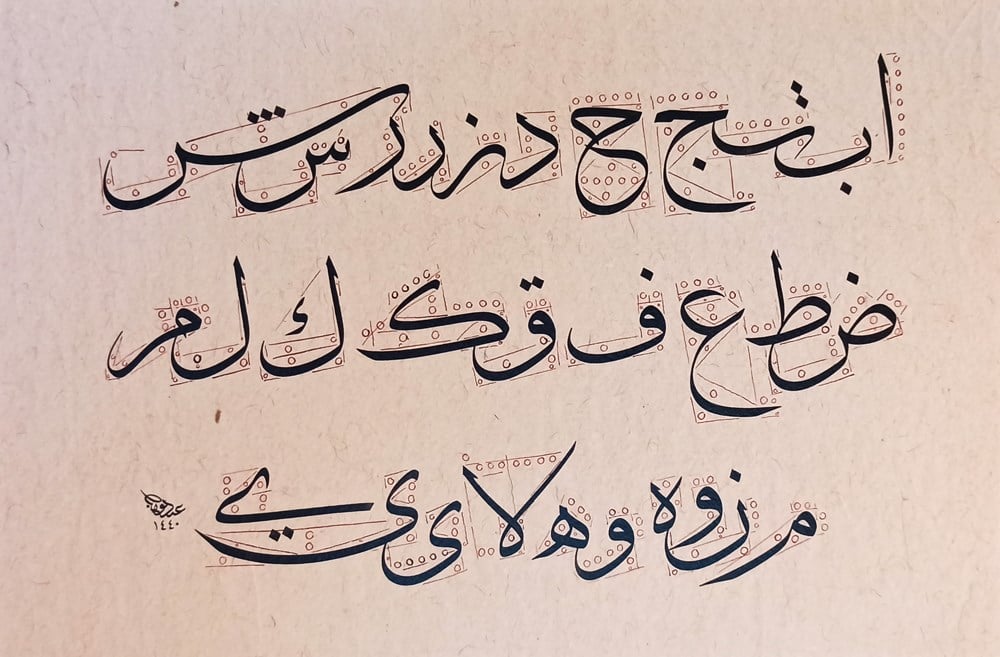 ا ب تج ح د ن ز د ر س ش
ض ط ع ف ق ک ك ل م
م ن و ه و ه لا ی ي
١٤٤٠